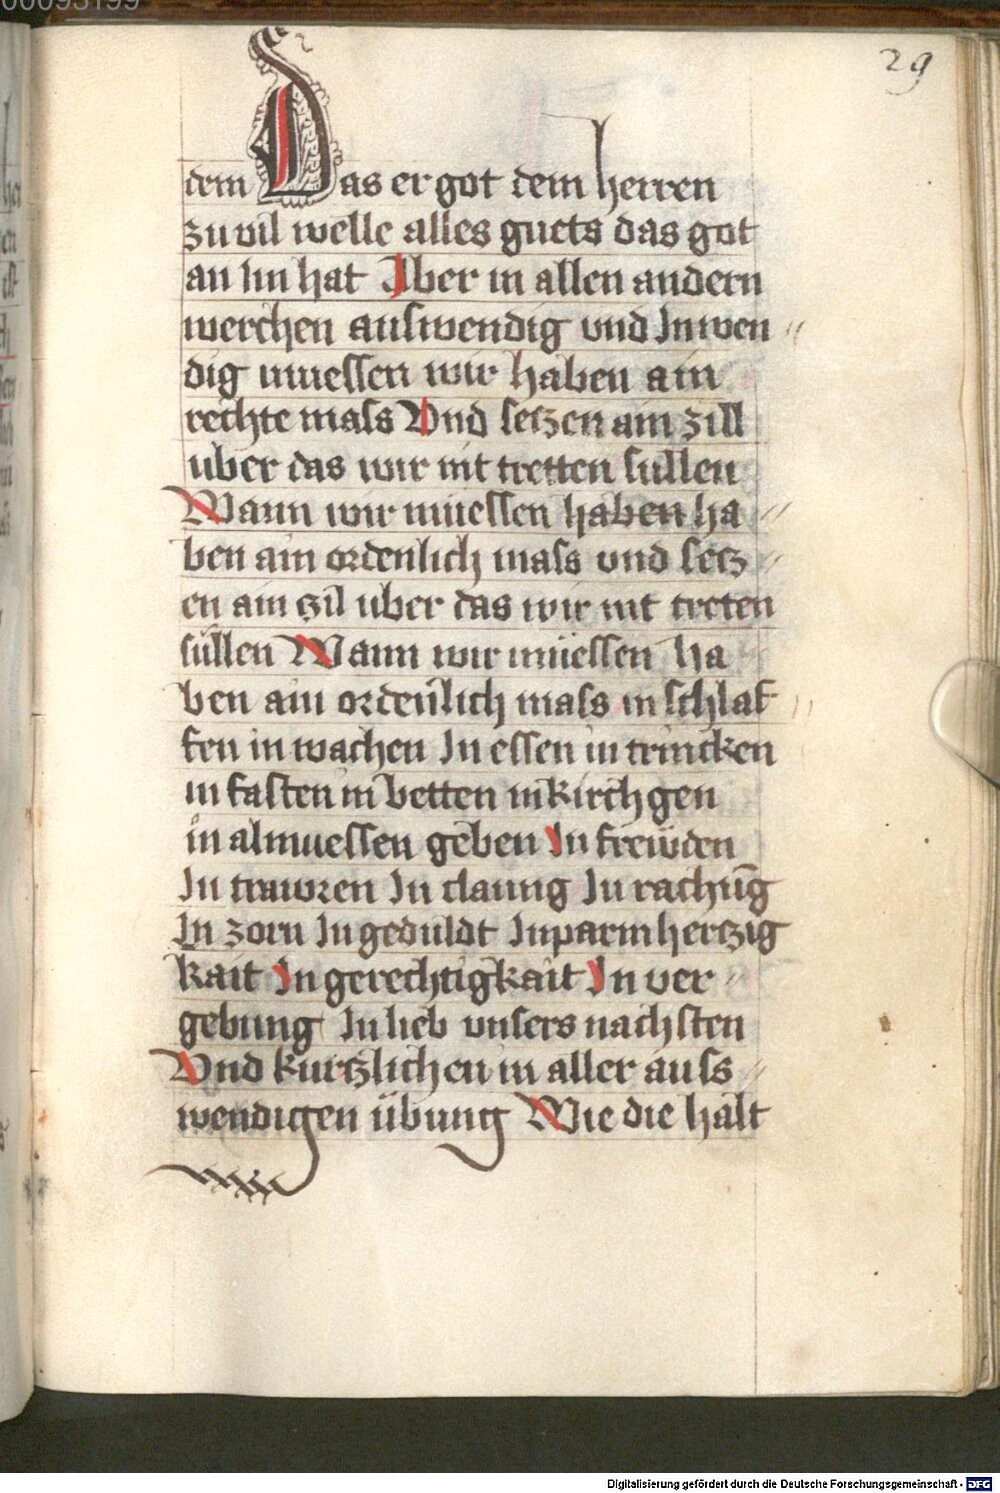 29
dem Das er got dem herren
zu vil welle alles guets das got
an im hat Aber in allen andern
werchen auswendig vnd Inwen
dig muessen wir haben ain
rechte mass Vnd setzen ain zill
uber das wir nit tretten sullen
Wann wir muessen haben ha
ben ain ordenlich mass vnd setz
en ain zil uber das wir nit treten
süllen Wann wir müessen ha
ben ain ordenlich mass in schlaf
fen in wachen In essen in trincken
in fasten in betten in kirch gen
in almuessen geben In frewden
In trawren In claung In rachūg
In zorn In geduldt In parmhertzig
kait In gerechtigkait In ver
gebung In lieb vnsers nachsten
Vnd kurtzlichen in aller auss
wendigen übung Wie die halt
Digitalisierung gefördert durch die Deutsche Forschungsgemeinschaft - DFG